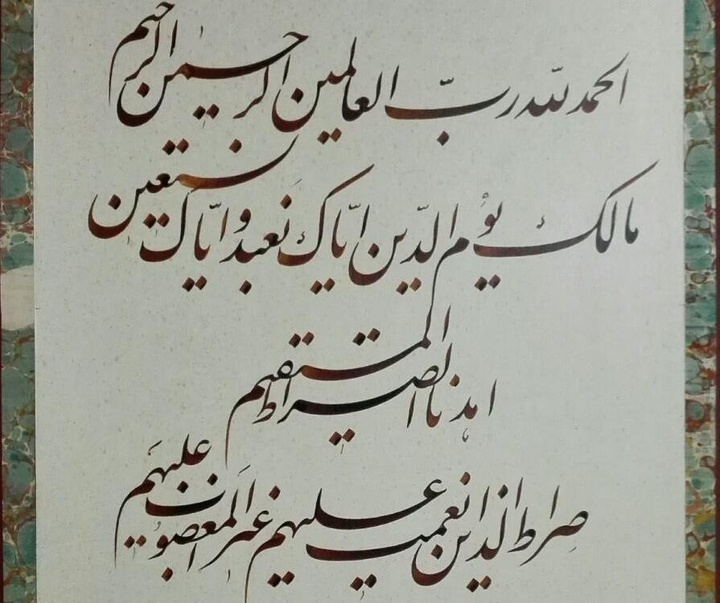 الحمد لله ربّ العالمین الرحیمن الرحیم
مالک یوم الدّین ایّاک نعبد وایّاک نستعین
اهدنا الصراط المستقیم
صراط الذین انعمت علیهم غیر المغضوب علیهم